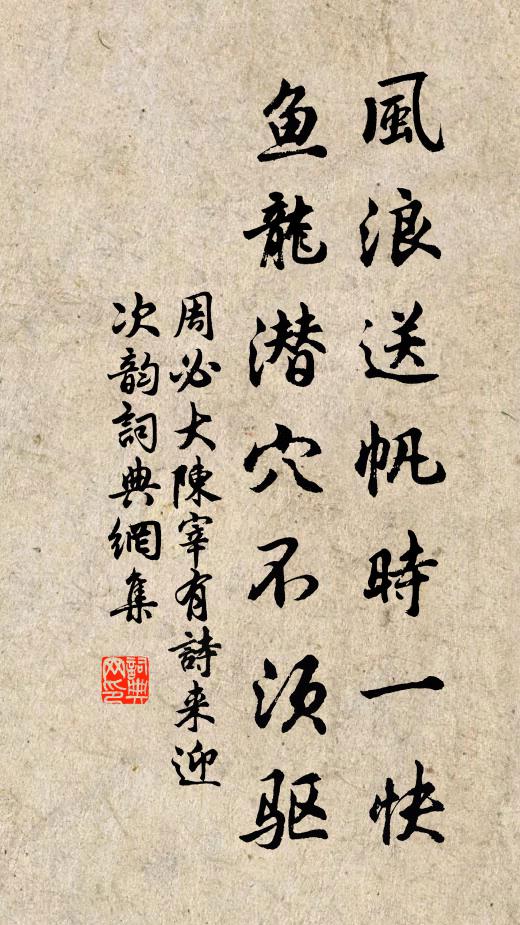 風浪送帆時一快
鱼龍潜穴不须驱
周必大陳宰有詩来迎
次韵詞典網集
詞典
网印